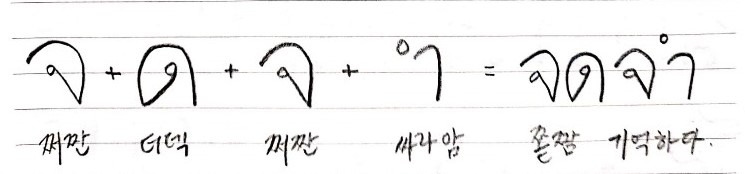 จ + ด + จ + ำ = จดจำ
쩌짠 더덱 쩌짠 싸라암 쫃짬 기억하다.